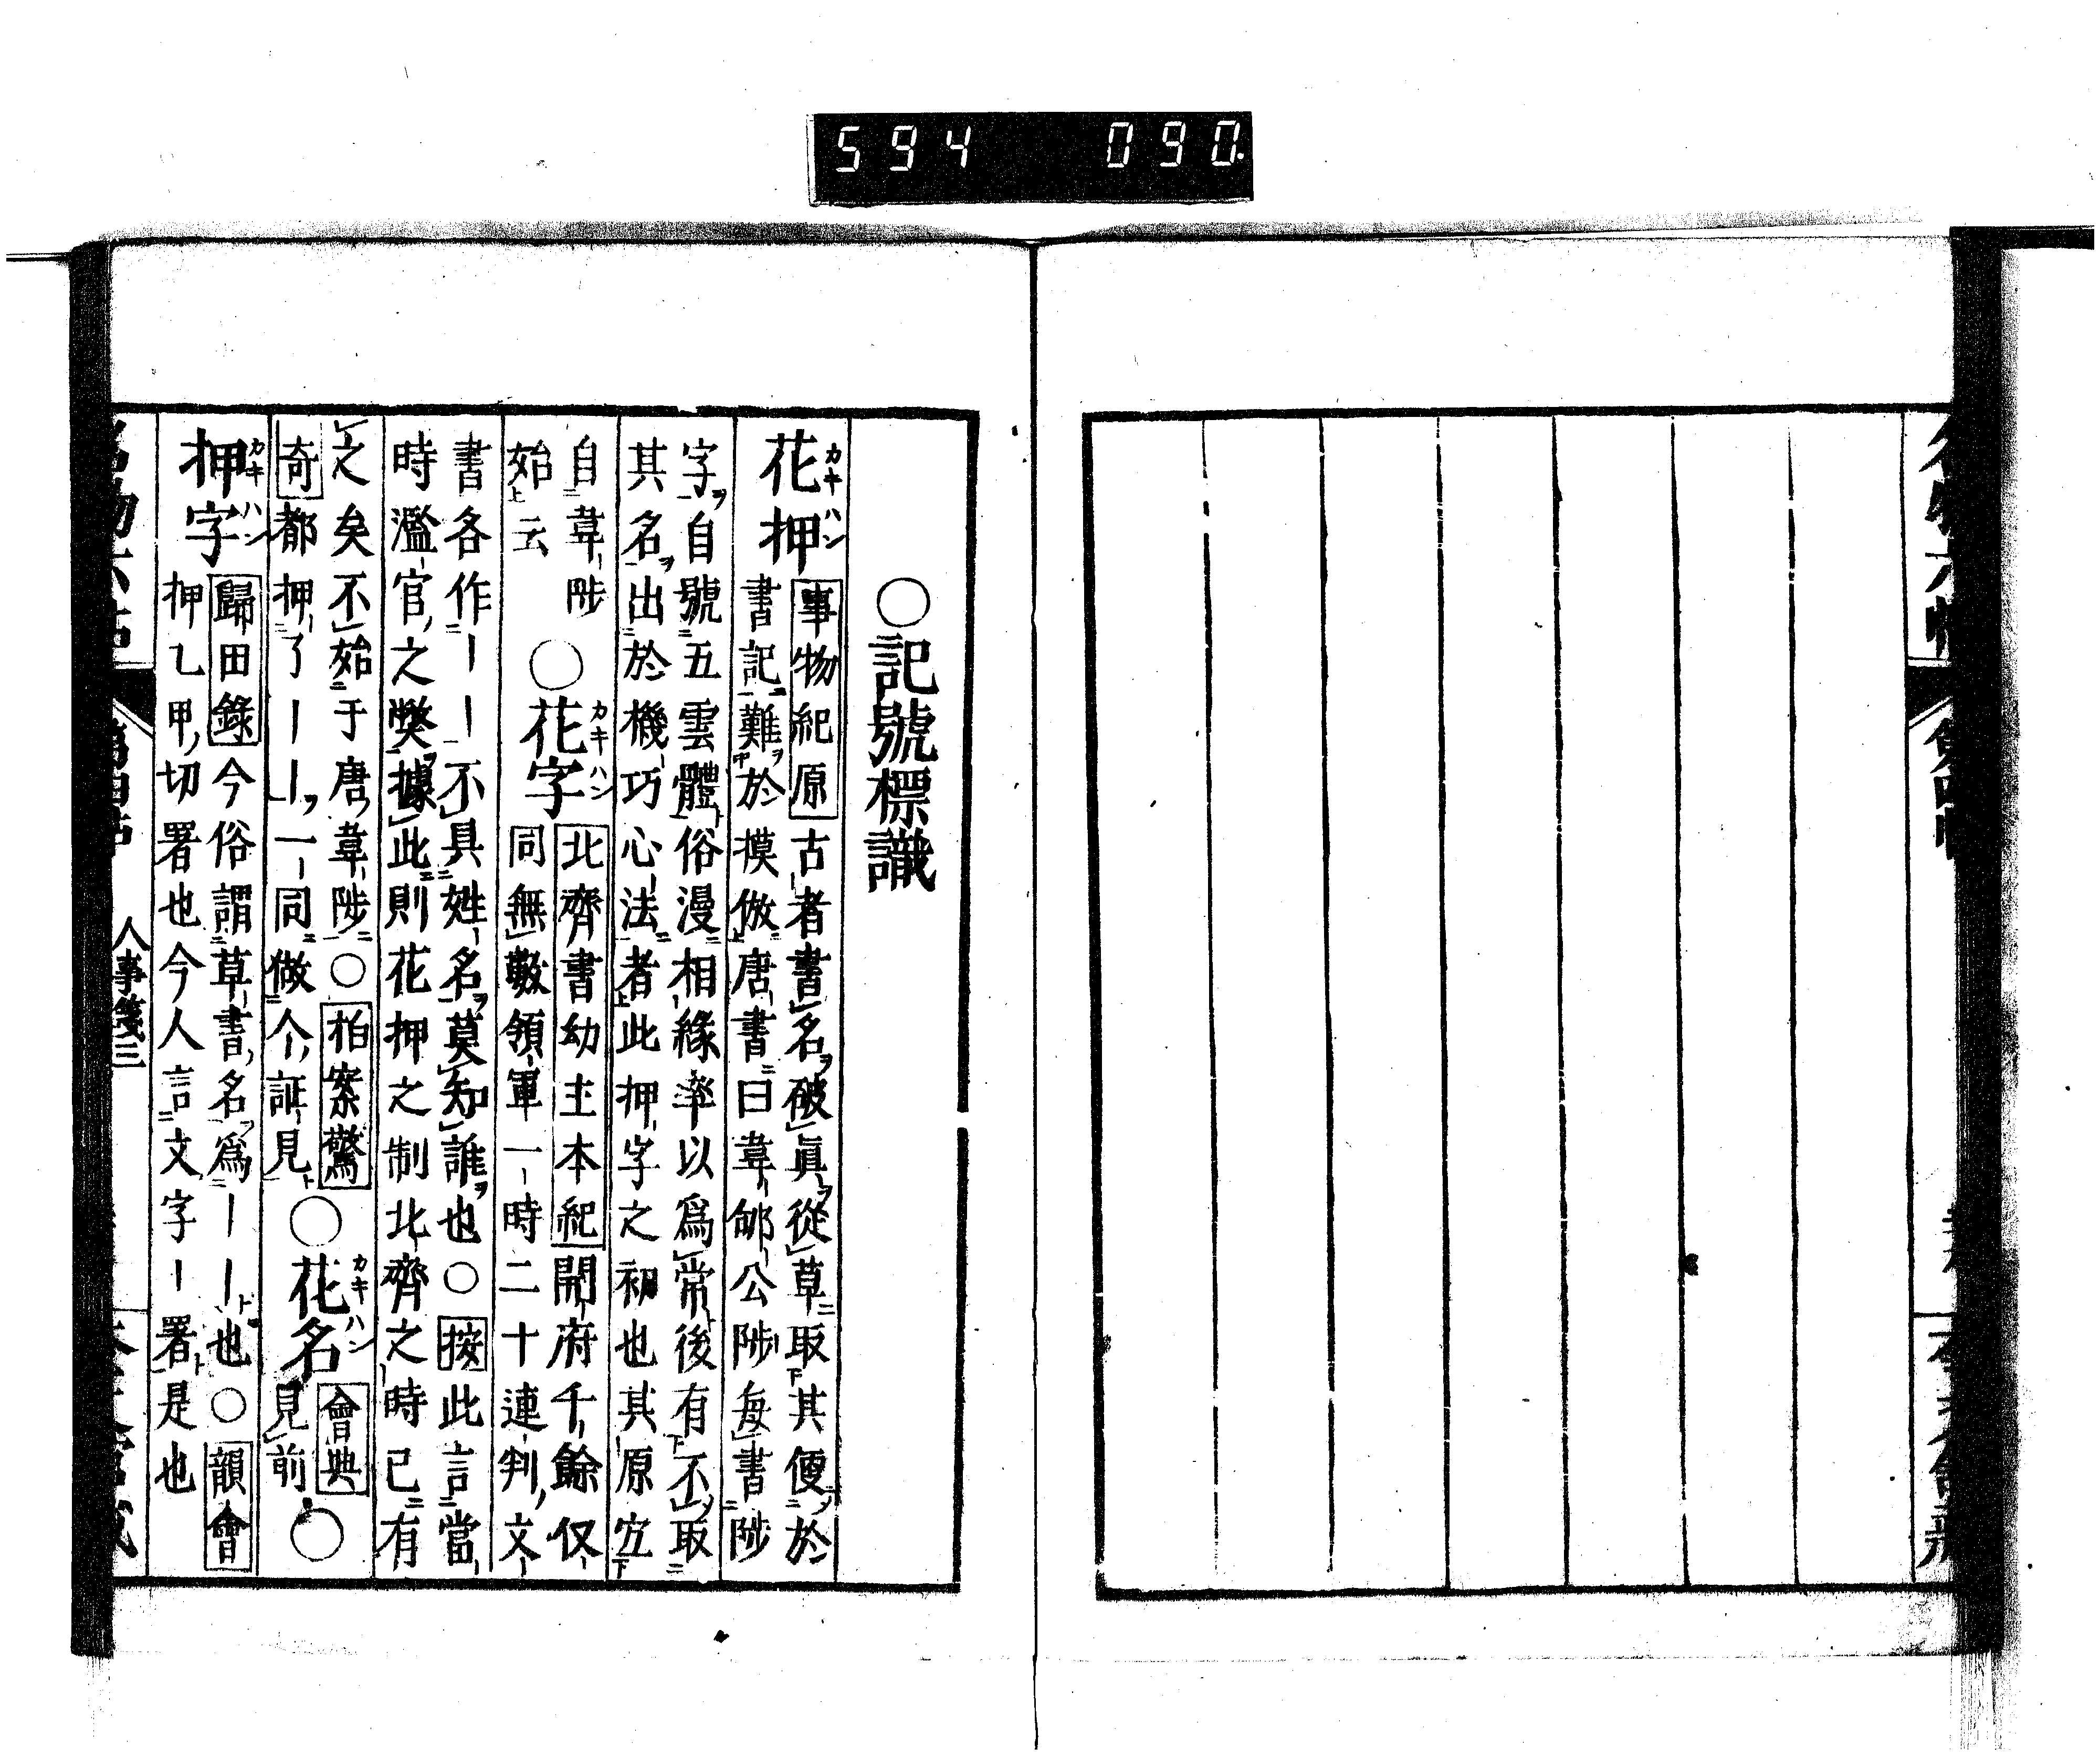 594 090.
○記號標識
花押 カキハン
事物紀原古者書名破眞從草取其便於
書記難於摸倣唐書曰韋郇公陟每書陟
字自號五雲體俗漫相緣率以爲常後有不取
其名出於機巧心法者此押字之初也其原宜
自韋陟
始云
○花字 カキハン
北齊書幼主本紀開府千餘儀
同無數領軍一時二十連判文
書各作｜｜不具姓名莫知誰也○按此言當
時濫官之獘據此則花押之制北齊之時已有
之矣不始于唐韋陟○拍案驚
奇都押了｜｜一同做个証見
○花名 カキハン
會典
見前○
押字 カキハン
歸田錄今俗謂草書名爲｜｜也○韻會
押乙甲切署也今人言文字｜署是也
人事箋三